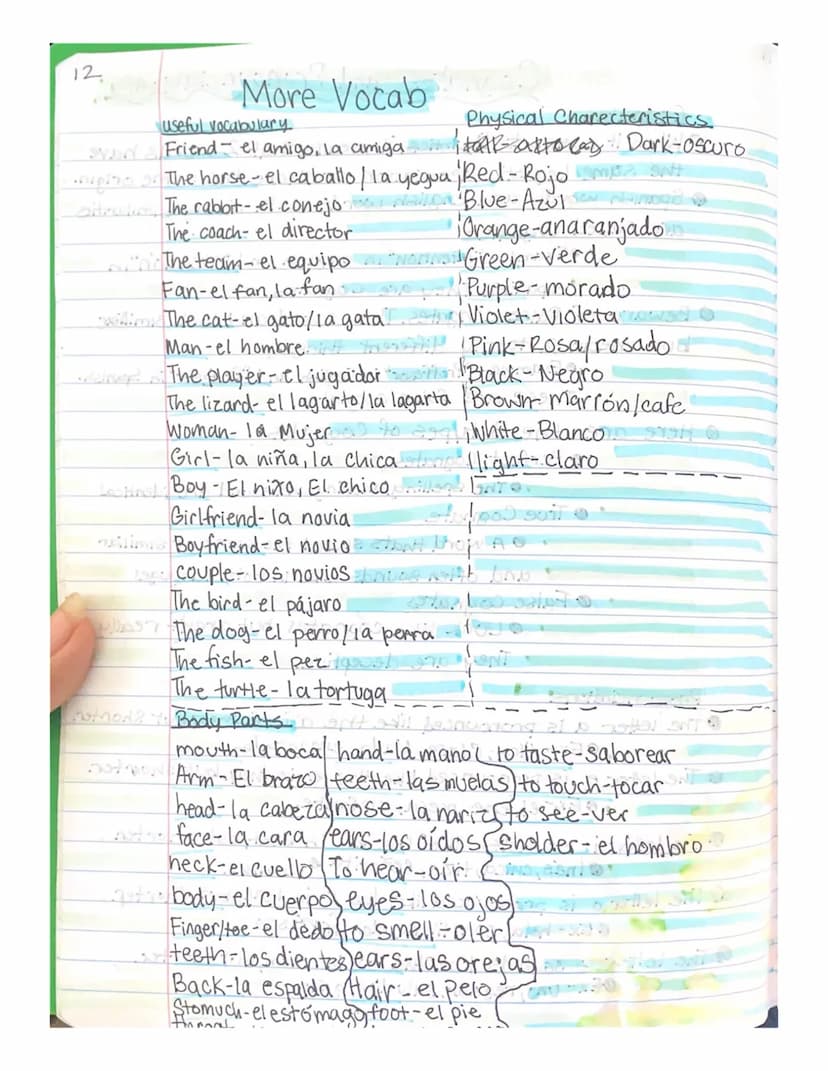 12
More Vocab
useful vocabulary
Friend- el amigo, la amiga
The horse- el caballo/la yegua
The rabbit- el conejo
The coach- el director
The team- el equipo
Fan-el fan, la fan
The cat-el gato/la gata
Man-el hombre
The player- el jugador
The lizard- el lagarto/la lagarta
Woman- la Mujer
Girl-la niña, la chica
Boy-El niño, El chico
Girlfriend- la novia
Boyfriend-el novio
couple- los novios
The bird-el pájaro
The dog-el perro/la perra
The fish- el pez
The turtle- la tortuga
Physical Charecteristics
Dark-oscuro
Red-Rojo
Blue-Azul
Orange-anaranjado
Green-verde
Purple-morado
Violet-Violeta
Pink-Rosa/rosado
Black-Negro
Brown- Marrón/cafe
White-Blanco
light-claro
Body Parts
mouth-la boca
Arm-El brazo
head-la cabeza
face-la cara
neck-el cuello
body-el cuerpo
Finger/toe-el dedo
teeth-los dientes
Back-la espalda
Stomuch-el estómago
hand-la mano
teeth-las muelas
nose-la nariz
ears-los oídos
To hear-oír
eyes-los ojos
to smell-oler
ears-las orejas
Hair-el pelo
foot-el pie
to taste-saborear
to touch-tocar
to see-ver
Sholder-el hombro